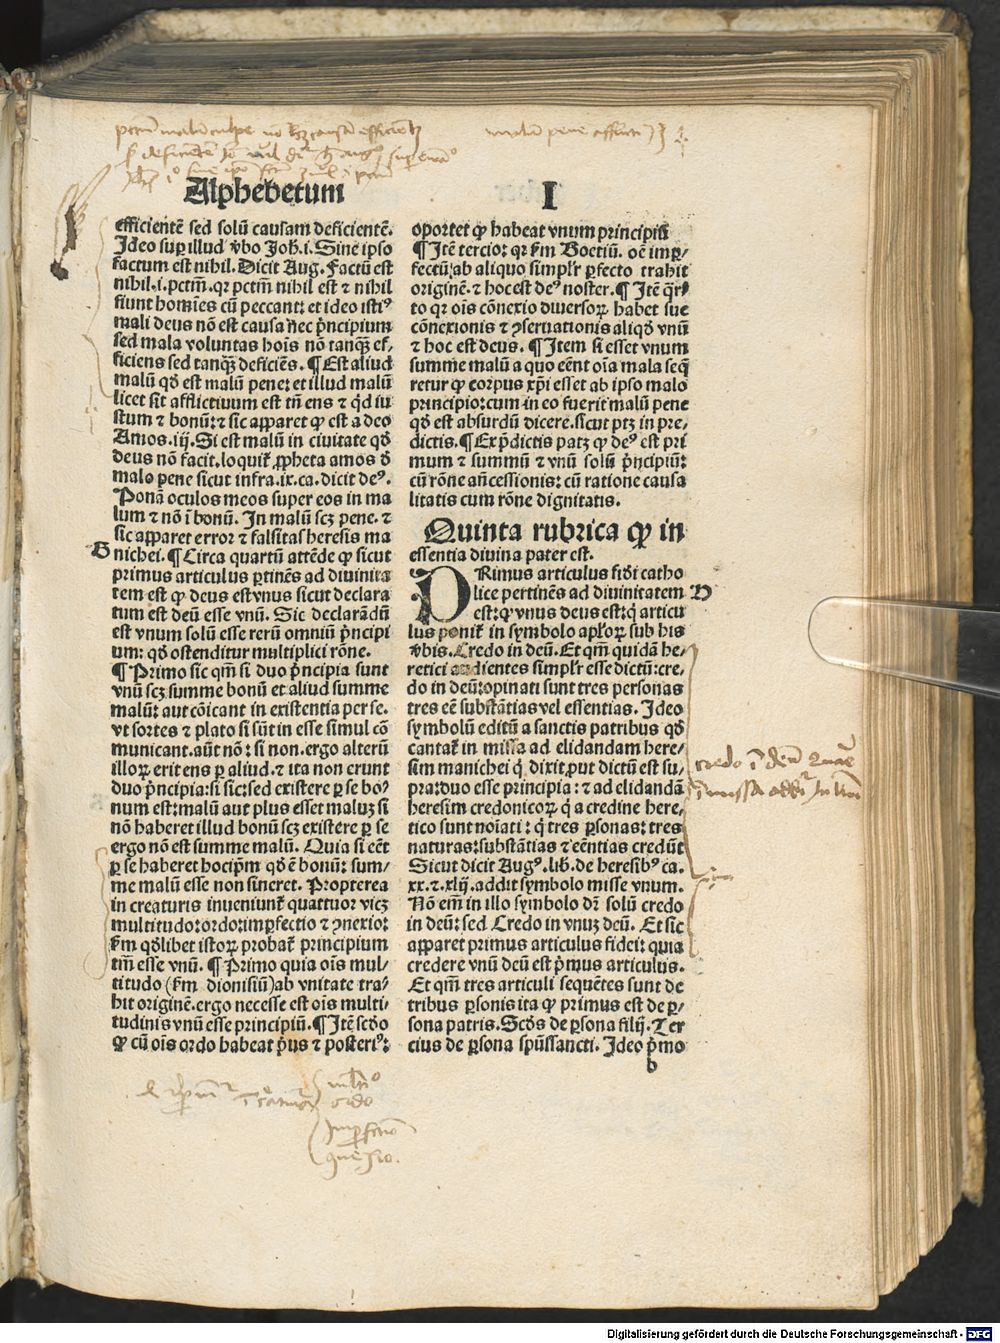 Alphebetum
I
efficientē sed solū causam deficientē.
Ideo sup illud ṽbo Joh̄. i. Sine ipso
factum est nihil. Dicit Aug. Factū est
nihil. i. pctm̄. qr pctm̄ nihil est ⁊ nihil
fiunt homīes cū peccant: et ideo istiꝰ
mali deus nō est causa nec p̄ncipium
sed mala voluntas hoīs nō tanqȝ ef⸗
ficiens sed tanqȝ deficiēs. ¶ Est aliud
malū qd̄ est malū pene: et illud malū
licet sit afflictiuum est tn̄ ens ⁊ qd iu
stum ⁊ bonū: ⁊ sic apparet ꝙ est a deo
Amos. iij. Si est malū in ciuitate qd̄
deus nō facit. loquit̄ ꝓpheta amos d̄
malo pene sicut infra. ix. ca. dicit deꝰ.
Ponā oculos meos super eos in ma
lum ⁊ nō ī bonū. In malū scȝ pene. ⁊
sic apparet error ⁊ falsitas heresis ma
G
nichei. ¶ Circa quartū attēde ꝙ sicut
primus articulus ꝑtinēs ad diuinita
tem est ꝙ deus est vnus sicut declara
tum est deū esse vnū. Sic declarādū
est vnum solū esse rerū omniū p̄ncipi
um: qd̄ ostenditur multiplici rōne.
¶ Primo sic qm̄ si duo p̄ncipia sunt
vnū scȝ summe bonū et aliud summe
malū: aut cōicant in existentia per se.
vt sortes ⁊ plato si sūt in esse simul cō
municant. aūt nō: si non. ergo alterū
illoꝝ erit ens ꝑ aliud. ⁊ ita non erunt
duo p̄ncipia: si sic: sed existere ꝑ se bo⸗
num est: malū aut plus esset maluȝ si
nō haberet illud bonū scȝ existere ꝑ se
ergo nō est summe malū. Quia si eēt
ꝑ se haberet hoc ipm̄ qd̄ ē bonū: sum⸗
me malū esse non sineret. Propterea
in creaturis inueniunt̄ quattuor vicȝ
multitudo: ordo: imꝑfectio ⁊ ꝯnexio:
ẜm qd̄libet istoꝝ probat̄ principium
tm̄ esse vnū. ¶ Primo quia oīs mul⸗
titudo (ẜm dionisiū) ab vnitate tra⸗
hit originē. ergo necesse est oīs multi⸗
tudinis vnū esse principiū. ¶ Itē scd̄o
ꝙ cū oīs ordo habeat p̄us ⁊ posteriꝰ:
oportet ꝙ habeat vnum principiū
¶ Itē tercio: qr ẜm Boetiū. oē imꝑ⸗
fectū: ab aliquo simplr ꝑfecto trahit
originē. ⁊ hoc est deꝰ noster. ¶ Itē q̄r⸗
to qr oīs cōnexio diuersoꝝ habet sue
cōnexionis ⁊ ꝯseruationis aliqd̄ vnū
⁊ hoc est deus. ¶ Item si esset vnum
summe malū a quo eēnt oīa mala seq̄
retur ꝙ corpus xp̄i esset ab ipso malo
principio: cum in eo fuerit malū pene
qd̄ est absurdū dicere. sicut ptȝ in pre⸗
dictis. ¶ Ex p̄dictis patȝ ꝙ deꝰ est pri
mum ⁊ summū ⁊ vnū solū p̄ncipiū:
cū rōne an̄cessionis: cū ratione causa
litatis cum rōne dignitatis.
Quinta rubrica ꝙ in
essentia diuina pater est.
PRimus articulus fidi catho
lice pertinēs ad diuinitatem
D
est: ꝙ vnus deus est: q̇ articu
lus ponit̄ in symbolo apl̄oꝝ sub his
ṽbis. Credo in deū. Et qm̄ quidā he⸗
retici audientes simplr esse dictū: cre⸗
do in deū: opinati sunt tres personas
tres eē substātias vel essentias. Ideo
symbolū editū a sanctis patribus qd̄
cantat̄ in missa ad elidandam here⸗
sim manichei q̇ dixit, put dictū est su⸗
pra: duo esse principia: ⁊ ad elidandā
heresim credonicoꝝ q̇ a credine here⸗
tico sunt noīati: q̇ tres ꝑsonas: tres
naturas: substātias ⁊ eēntias credūt
Sicut dicit Augꝰ. lib. de heresibꝰ ca.
xx. ⁊. xlij. addit symbolo misse vnum.
Nō em̄ in illo symbolo dr̄ solū credo
in deū: sed Credo in vnuȝ deū. Et sic
apparet primus articulus fidei: quia
credere vnū deū est p̄mus articulus.
Et qm̄ tres articuli sequētes sunt de
tribus ꝑsonis ita ꝙ primus est de ꝑ⸗
sona patris. Scd̄s de ꝑsona filij. Ter
cius de ꝑsona spūssancti. Ideo p̄mo
b
ordo
Digitalisierung gefördert durch die Deutsche Forschungsgemeinschaft - DFG